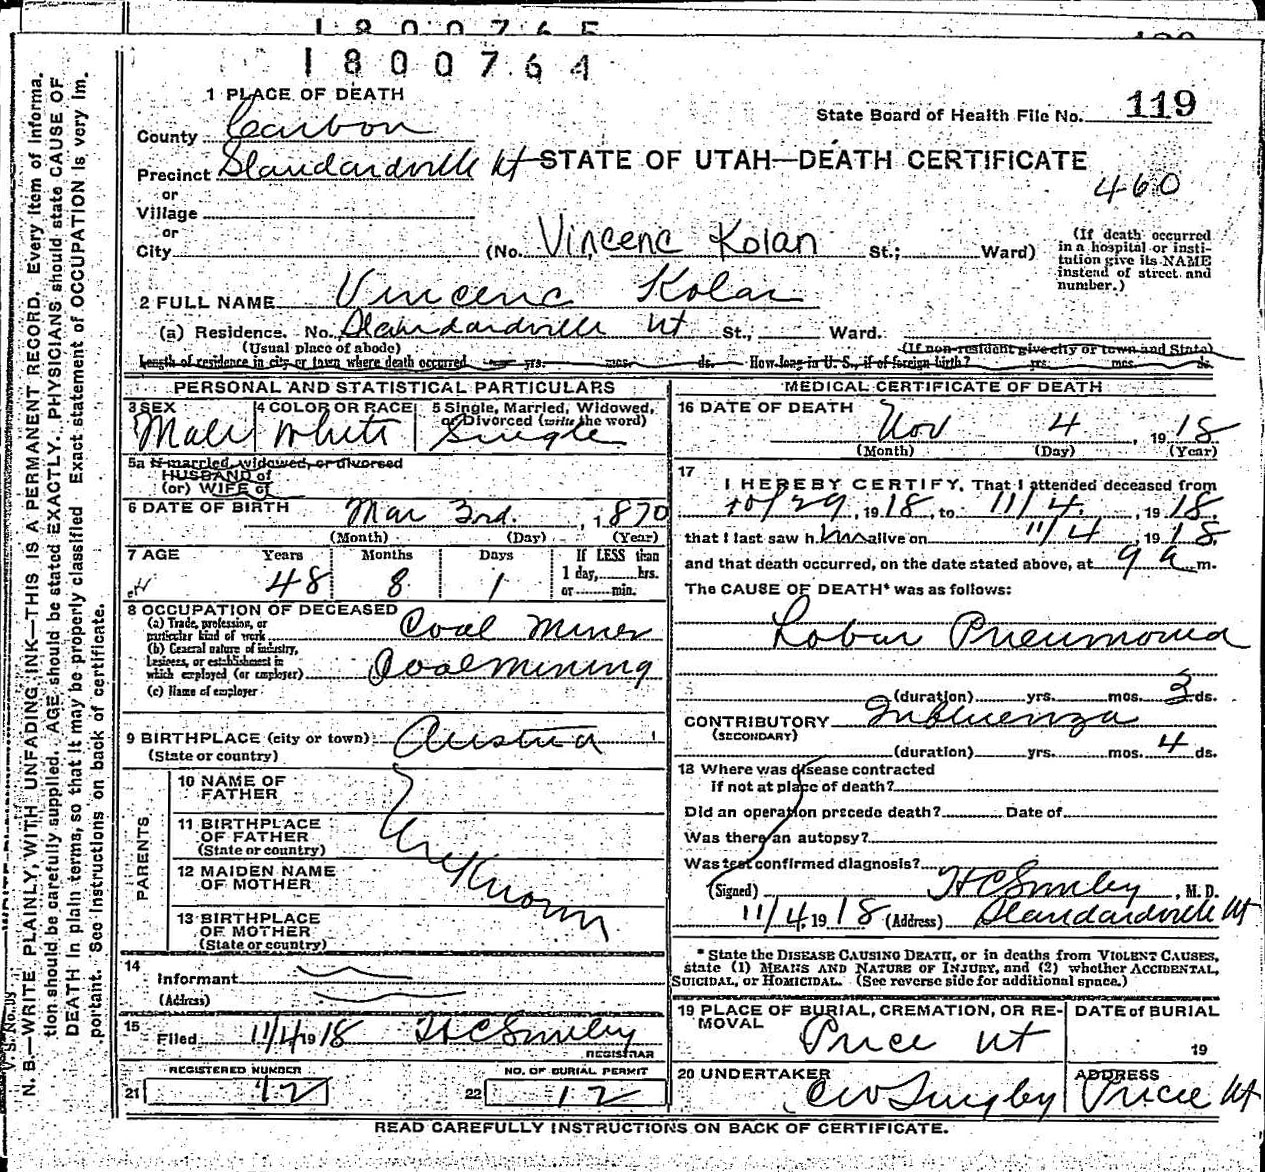 1800765
1800764
1 PLACE OF DEATH
State Board of Health File No. 119
County Carbon
STATE OF UTAH—DEATH CERTIFICATE
Precinct Standardville Ut
460
or
Village
or
City (No. Vincenc Kolan St.; Ward)
(If death occurred in a hospital or institution give its NAME instead of street and number.)
2 FULL NAME Vincenc Kolan
(a) Residence. No. Standardville Ut St., Ward.
(Usual place of abode) (If non-resident give city or town and State)
Length of residence in city or town where death occurred yrs. mos. ds. How long in U. S., if of foreign birth? yrs. mos. ds.
PERSONAL AND STATISTICAL PARTICULARS
3 SEX Male
4 COLOR OR RACE White
5 Single, Married, Widowed, or Divorced (write the word) Single
5a If married, widowed, or divorced
HUSBAND of
(or) WIFE of
6 DATE OF BIRTH Mar 3rd. , 1870
(Month) (Day) (Year)
7 AGE Years Months Days If LESS than
48 8 1 1 day, hrs.
or min.
8 OCCUPATION OF DECEASED
(a) Trade, profession, or particular kind of work Coal Miner
(b) General nature of industry, business, or establishment in which employed (or employer) Coal mining
(c) Name of employer
9 BIRTHPLACE (city or town) Austria
(State or country)
PARENTS
10 NAME OF FATHER
11 BIRTHPLACE OF FATHER
(State or country)
Unknown
12 MAIDEN NAME OF MOTHER
13 BIRTHPLACE OF MOTHER
(State or country)
14 Informant
(Address)
15 Filed 11/4 1918 H C Smiley
REGISTRAR
REGISTERED NUMBER
21 12
NO. OF BURIAL PERMIT
22 12
MEDICAL CERTIFICATE OF DEATH
16 DATE OF DEATH Nov 4 , 1918
(Month) (Day) (Year)
17
I HEREBY CERTIFY, That I attended deceased from
10/29, 1918, to 11/4, 1918.
that I last saw him alive on 11/4, 1918.
and that death occurred, on the date stated above, at 9 a m.
The CAUSE OF DEATH* was as follows:
Lobar Pneumonia
(duration) yrs. mos. 3 ds.
CONTRIBUTORY Influenza
(SECONDARY)
(duration) yrs. mos. 4 ds.
18 Where was disease contracted
if not at place of death?
Did an operation precede death? Date of
Was there an autopsy?
Was test confirmed diagnosis?
(Signed) H C Smiley, M. D.
11/4, 1918 (Address) Standardville Ut
* State the DISEASE CAUSING DEATH, or in deaths from VIOLENT CAUSES,
state (1) MEANS AND NATURE OF INJURY, and (2) whether ACCIDENTAL,
SUICIDAL, or HOMICIDAL. (See reverse side for additional space.)
19 PLACE OF BURIAL, CREMATION, OR REMOVAL Price Ut
DATE of BURIAL
19
20 UNDERTAKER
ADDRESS Price Ut
READ CAREFULLY INSTRUCTIONS ON BACK OF CERTIFICATE.
N. B.—WRITE PLAINLY, WITH UNFADING INK—THIS IS A PERMANENT RECORD. Every item of informa-
tion should be carefully supplied. AGE should be stated EXACTLY. PHYSICIANS should state CAUSE OF
DEATH in plain terms, so that it may be properly classified. Exact statement of OCCUPATION is very im-
portant. See instructions on back of certificate.